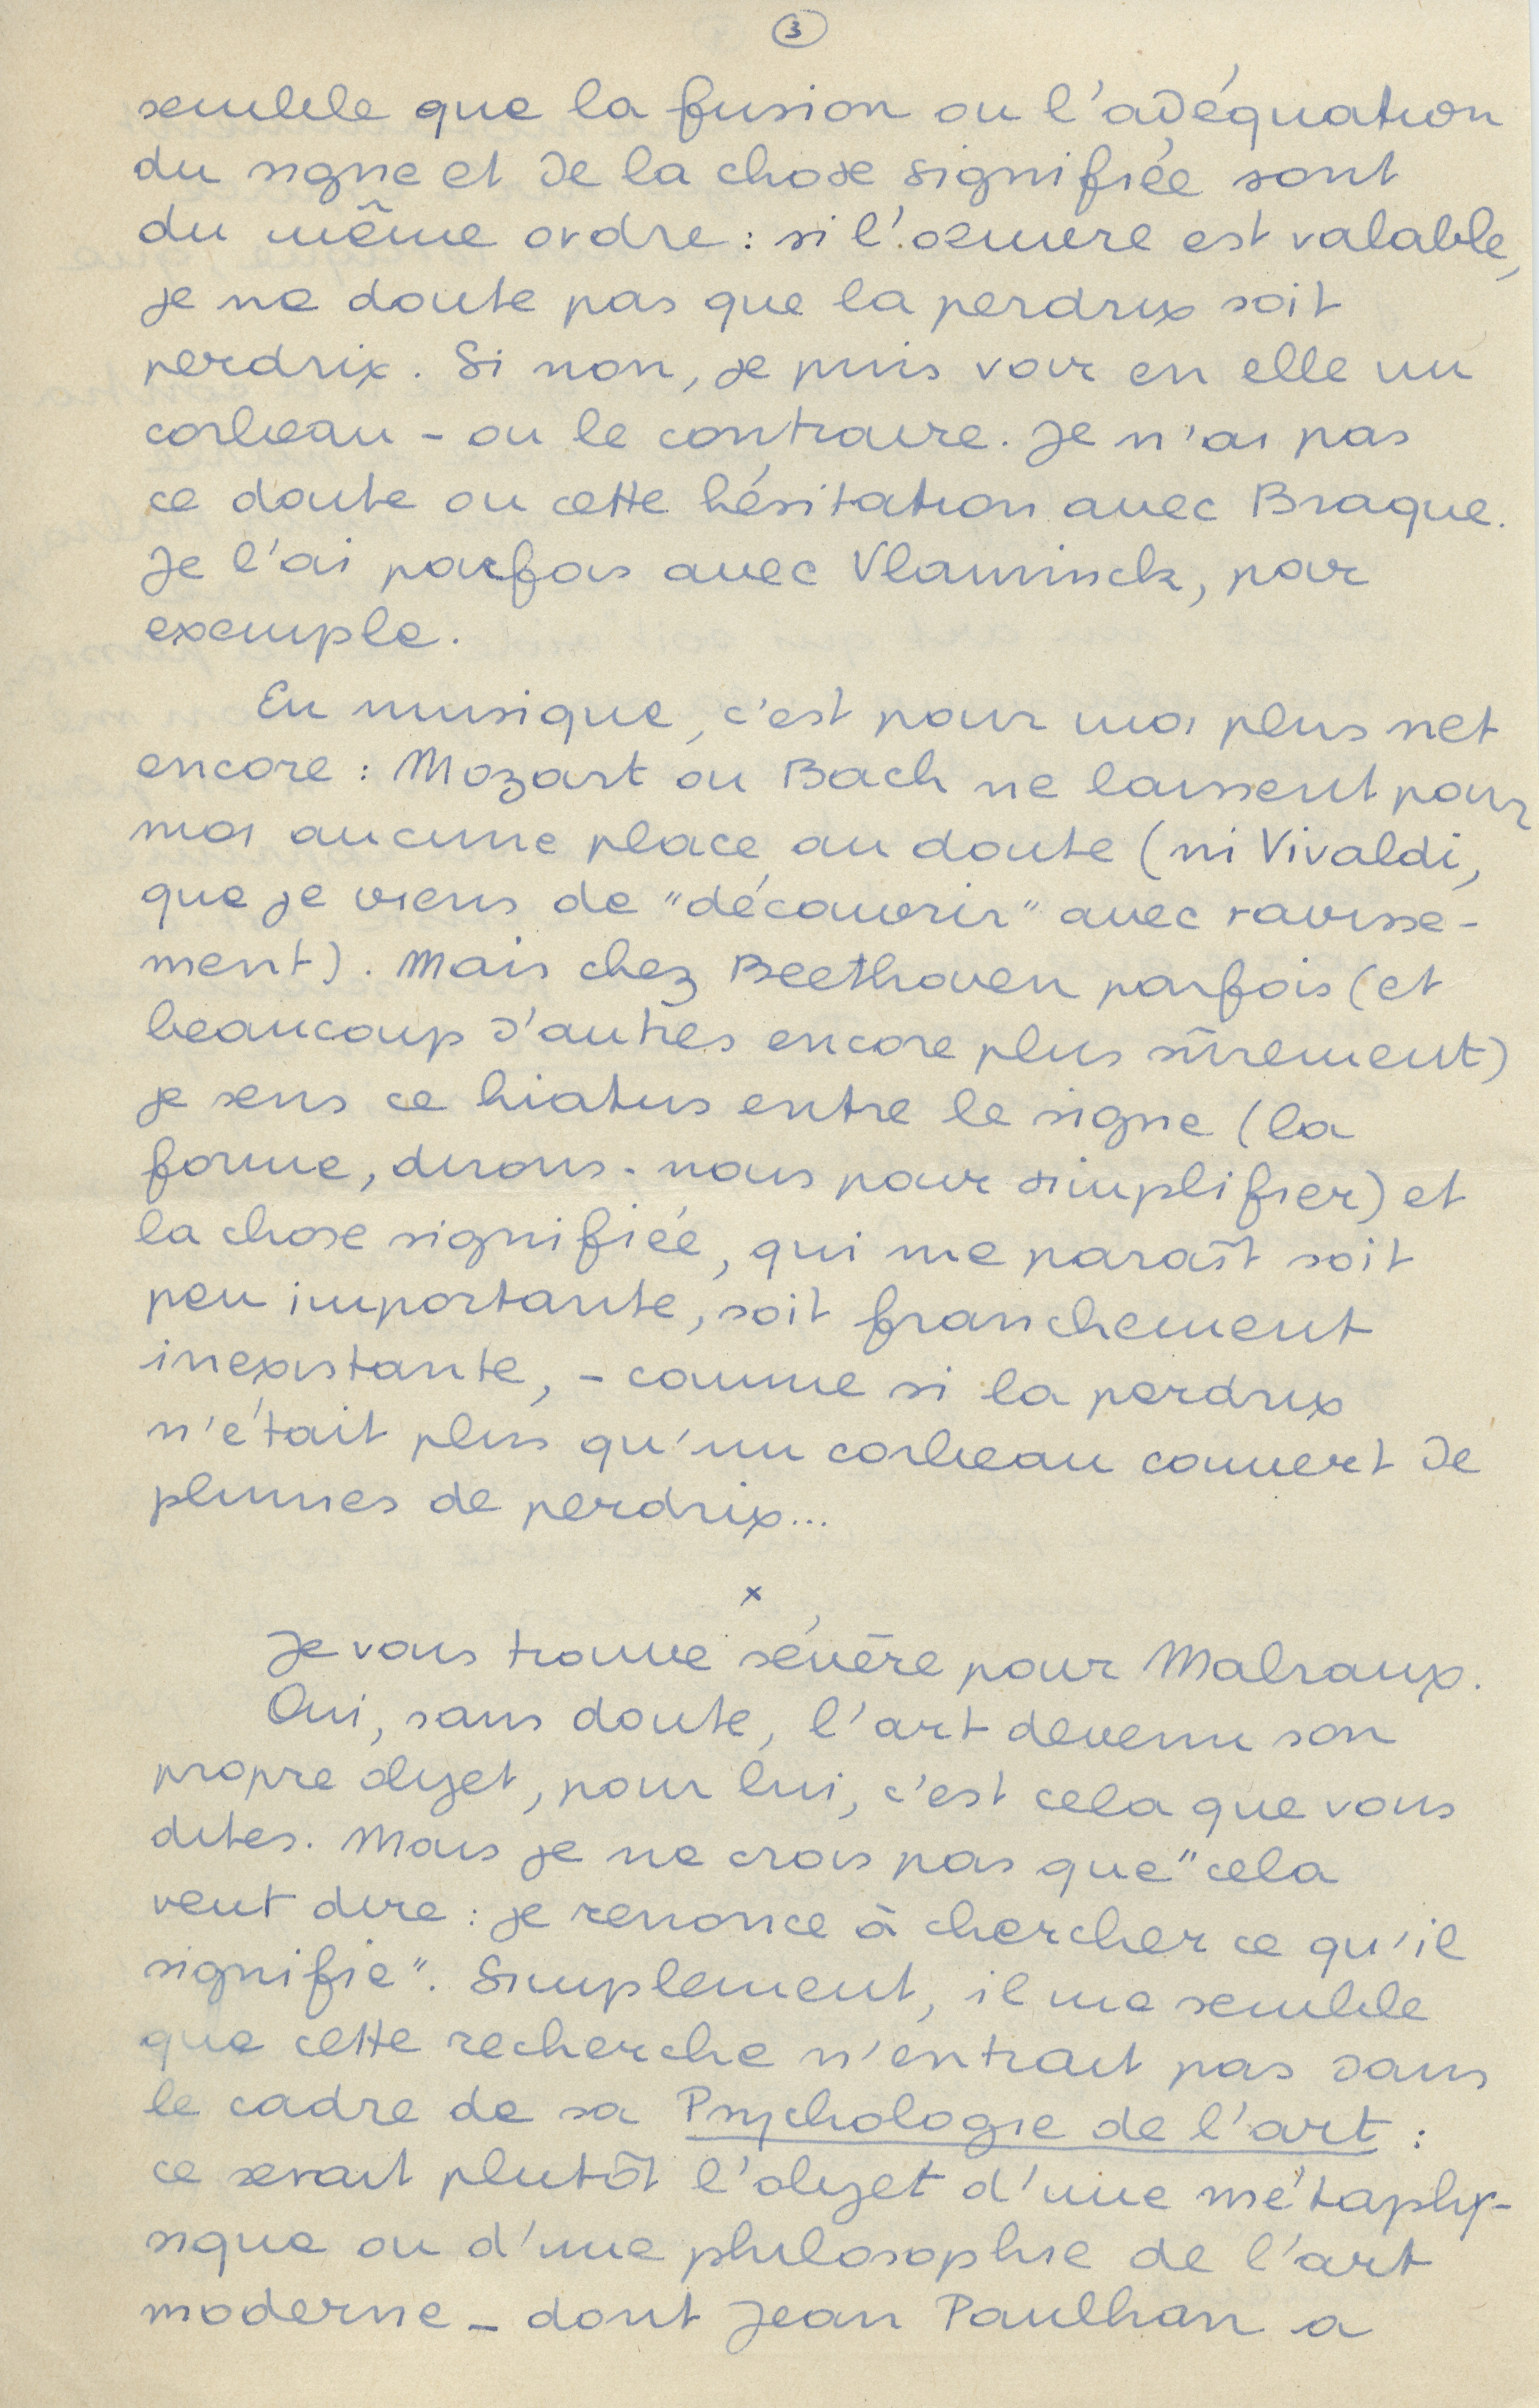 3
semble que la fusion ou l'adéquation
du signe et de la chose signifiée sont
du même ordre : si l'oeuvre est valable,
je ne doute pas que la perdrix soit
perdrix. Si non, je puis voir en elle un
corbeau - ou le contraire. Je n'ai pas
ce doute ou cette hésitation avec Braque.
Je l'ai parfois avec Vlaminck, par
exemple.
En musique, c'est pour moi plus net
encore : Mozart ou Bach ne laissent pour
moi aucune place au doute (ni Vivaldi,
que je viens de "découvrir" avec ravisse-
ment). Mais chez Beethoven parfois (et
beaucoup d'autres encore plus sûrement)
je sens ce hiatus entre le signe (la
forme, dirons-nous pour simplifier) et
la chose signifiée, qui me paraît soit
peu importante, soit franchement
inexistante, - comme si la perdrix
n'était plus qu'un corbeau couvert de
plumes de perdrix...
x
Je vous trouve sévère pour Malraux.
Oui, sans doute, l'art devenu son
propre objet, pour lui, c'est cela que vous
dites. Mais je ne crois pas que "cela
veut dire : je renonce à chercher ce qu'il
signifie". Simplement, il me semble
que cette recherche n'entrait pas dans
le cadre de sa Psychologie de l'art :
ce serait plutôt l'objet d'une métaphy-
sique ou d'une philosophie de l'art
moderne - dont Jean Paulhan a